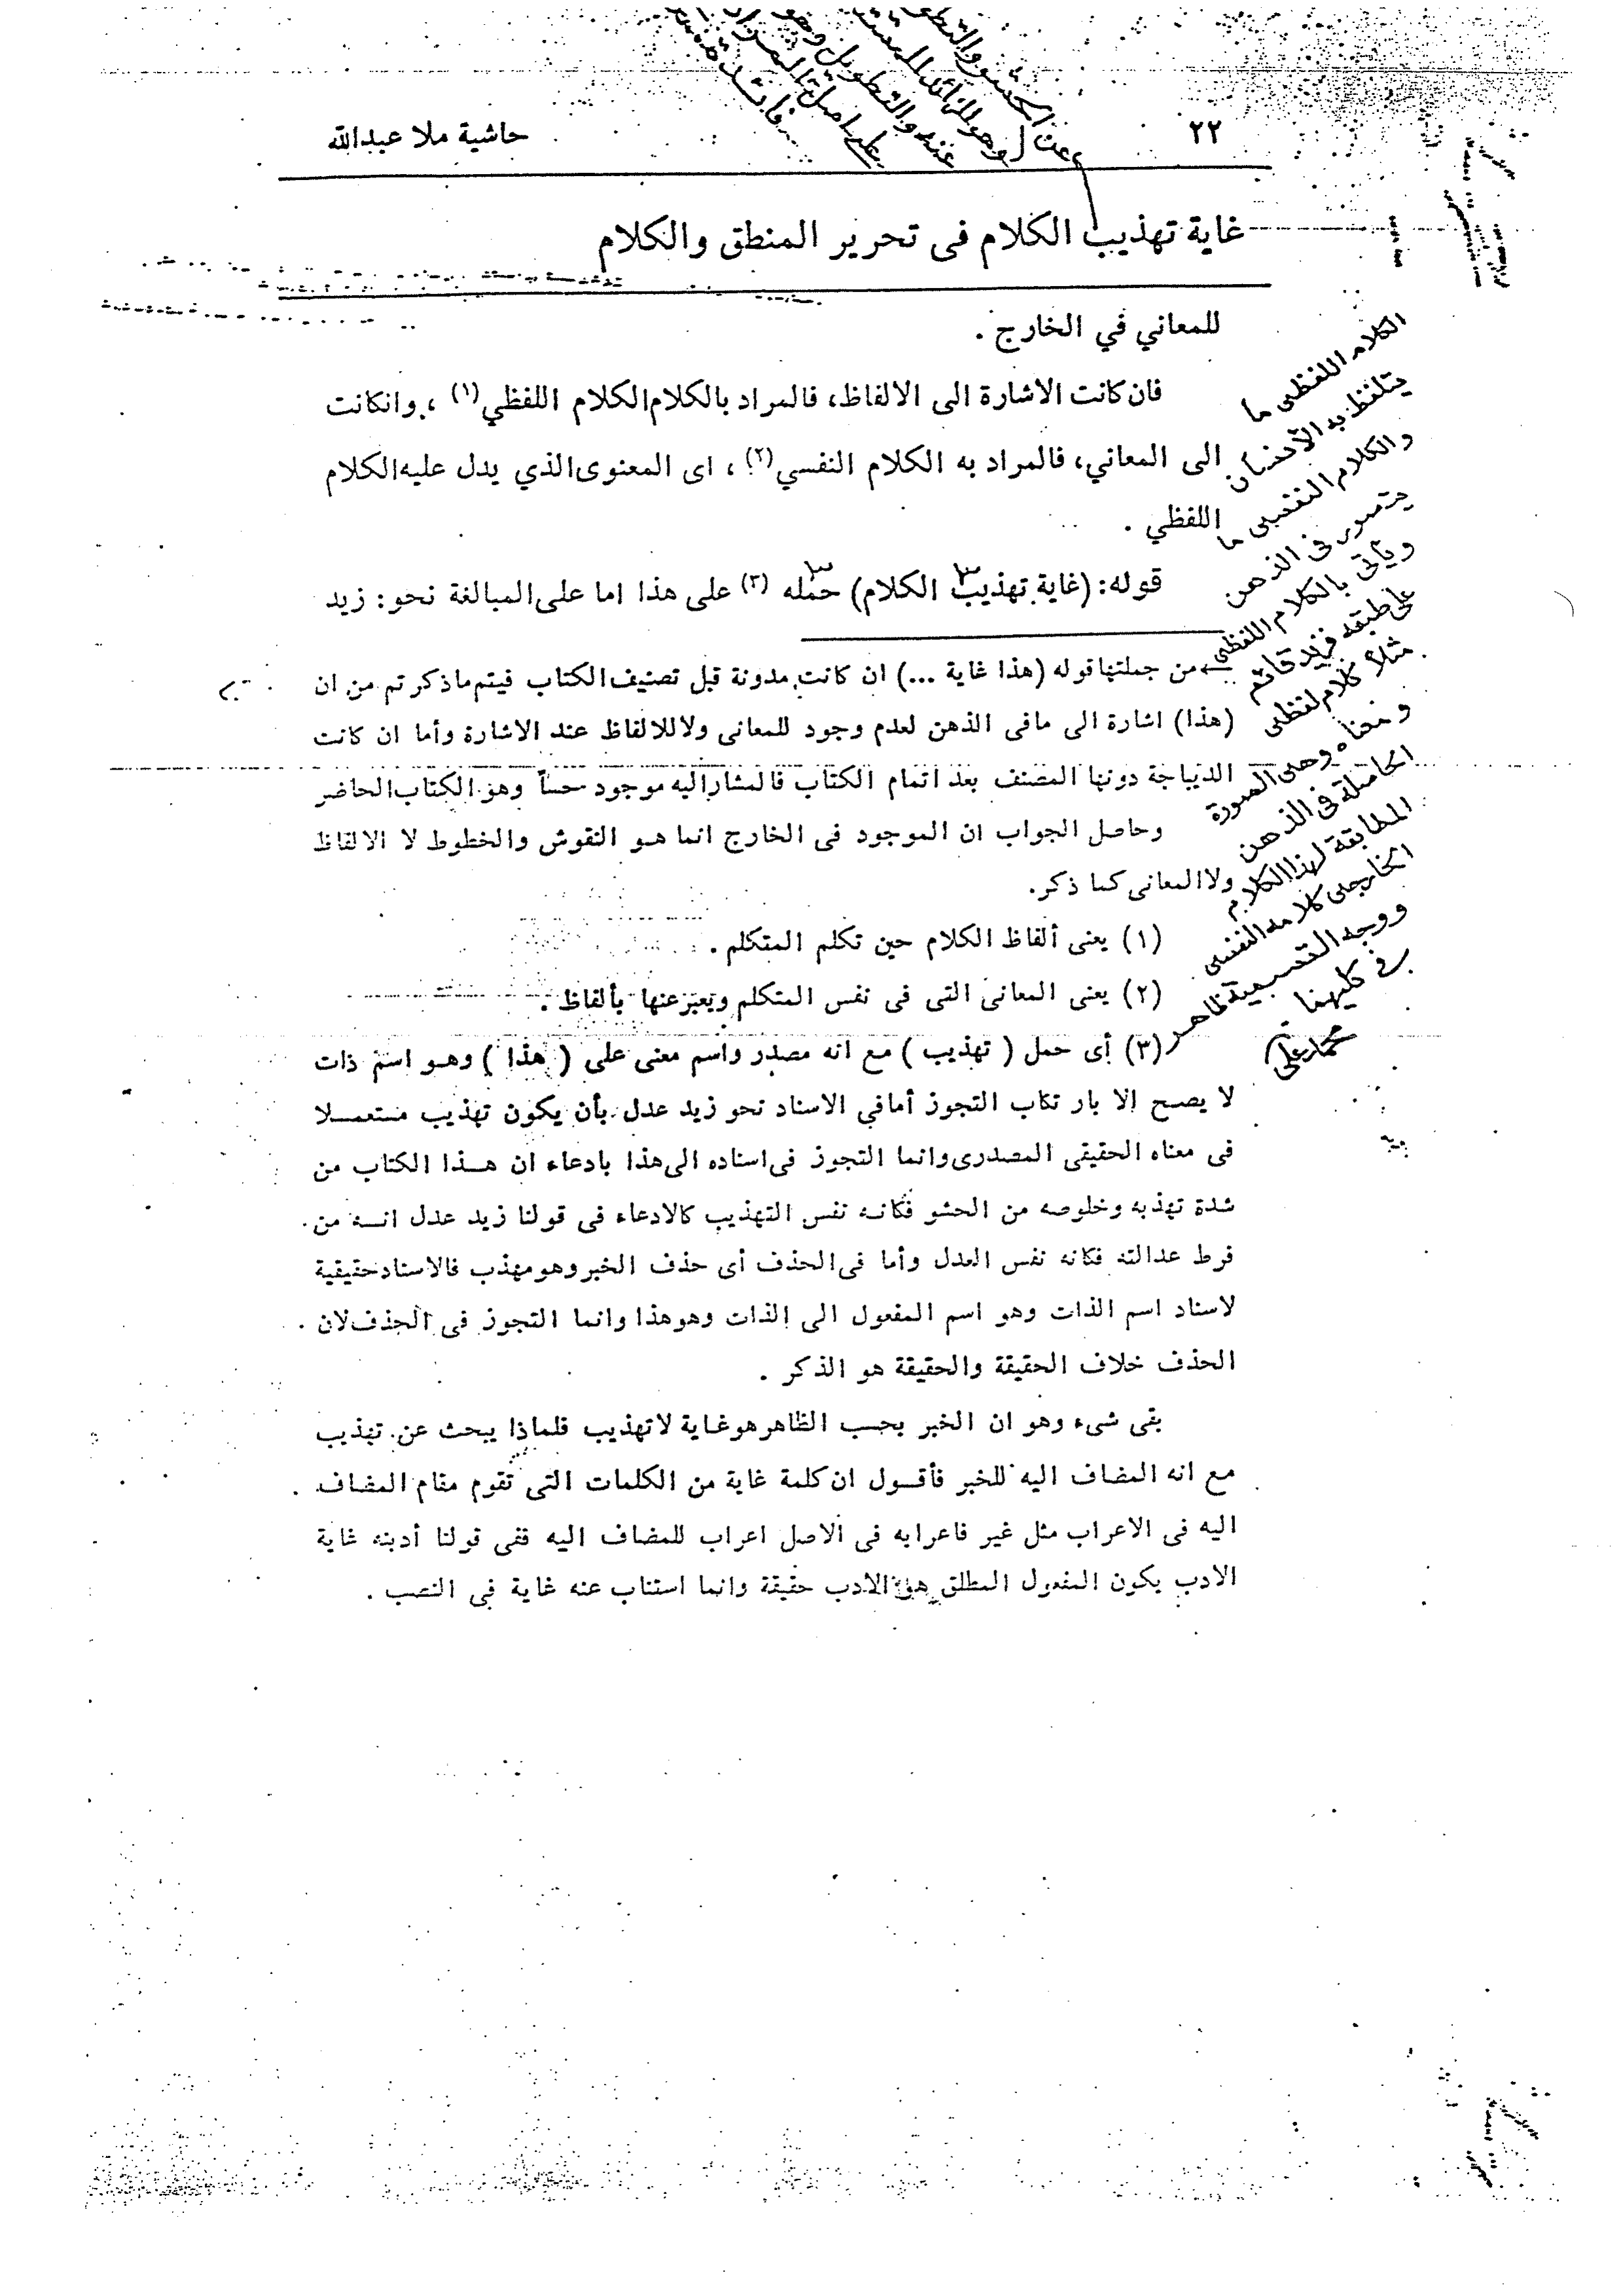 ٢٢
حاشية ملا عبدالله
غاية تهذيب الكلام فى تحرير المنطق والكلام
للمعاني في الخارج .
فان كانت الاشارة الى الالفاظ، فالمراد بالكلام الكلام اللفظي (١) ، وانكانت
الى المعاني، فالمراد به الكلام النفسي (٢) ، اى المعنوى الذي يدل عليه الكلام
اللفظي .
قوله: (غاية تهذيب الكلام) حمله (٣) على هذا اما على المبالغة نحو: زيد
من جملتها قوله (هذا غاية ...) ان كانت مدونة قبل تصنيف الكتاب فيتم ماذكر تم من ان
(هذا) اشارة الى مافى الذهن لعدم وجود للمعانى ولا للالفاظ عند الاشارة وأما ان كانت
الديباجة دونها المصنف بعد اتمام الكتاب فالمشار اليه موجود حساً وهو الكتاب الحاضر
وحاصل الجواب ان الموجود فى الخارج انما هو النقوش والخطوط لا الالفاظ
ولا المعانى كما ذكر.
(١) يعنى ألفاظ الكلام حين تكلم المتكلم .
(٢) يعنى المعانى التى فى نفس المتكلم ويعبر عنها بألفاظ .
(٣) أى حمل ( تهذيب ) مع انه مصدر واسم معنى على ( هذا ) وهو اسم ذات
لا يصح الا بار تكاب التجوز أما في الاسناد نحو زيد عدل بأن يكون تهذيب مستعملا
فى معناه الحقيقى المصدرى وانما التجوز فى اسناده الى هذا بادعاء ان هذا الكتاب من
شدة تهذبه وخلوصه من الحشو فكانه نفس التهذيب كالادعاء فى قولنا زيد عدل انه من
فرط عدالته فكانه نفس العدل وأما فى الحذف أى حذف الخبر وهو مهذب فالاسناد حقيقية
لاسناد اسم الذات وهو اسم المفعول الى الذات وهو هذا وانما التجوز فى الحذف لان
الحذف خلاف الحقيقة والحقيقة هو الذكر .
بقى شىء وهو ان الخبر بحسب الظاهر هو غاية لا تهذيب فلماذا يبحث عن تهذيب
مع انه المضاف اليه للخبر فأقول ان كلمة غاية من الكلمات التى تقوم مقام المضاف
اليه فى الاعراب مثل غير فاعرابه فى الاصل اعراب للمضاف اليه ففى قولنا أدبته غاية
الادب يكون المفعول المطلق هو الادب حقيقة وانما استناب عنه غاية فى النصب .
الكلام اللفظى ما
يتلفظ به الانسان
والكلام النفسى ما
يتصور فى الذهن
ويأتى بالكلام اللفظى
على طبقه فزيد قائم
مثلاً كلام لفظى
ومعناه وهى الصورة
الحاصلة فى الذهن
المطابقة لهذا الكلام
الخارجى كلامه النفسى
ووجه التسمية ظاهر
فى كليهما
محمد على